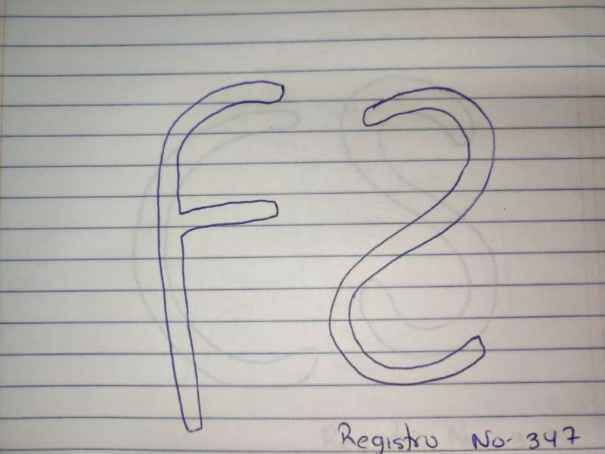 F Ƨ
Registro No- 347